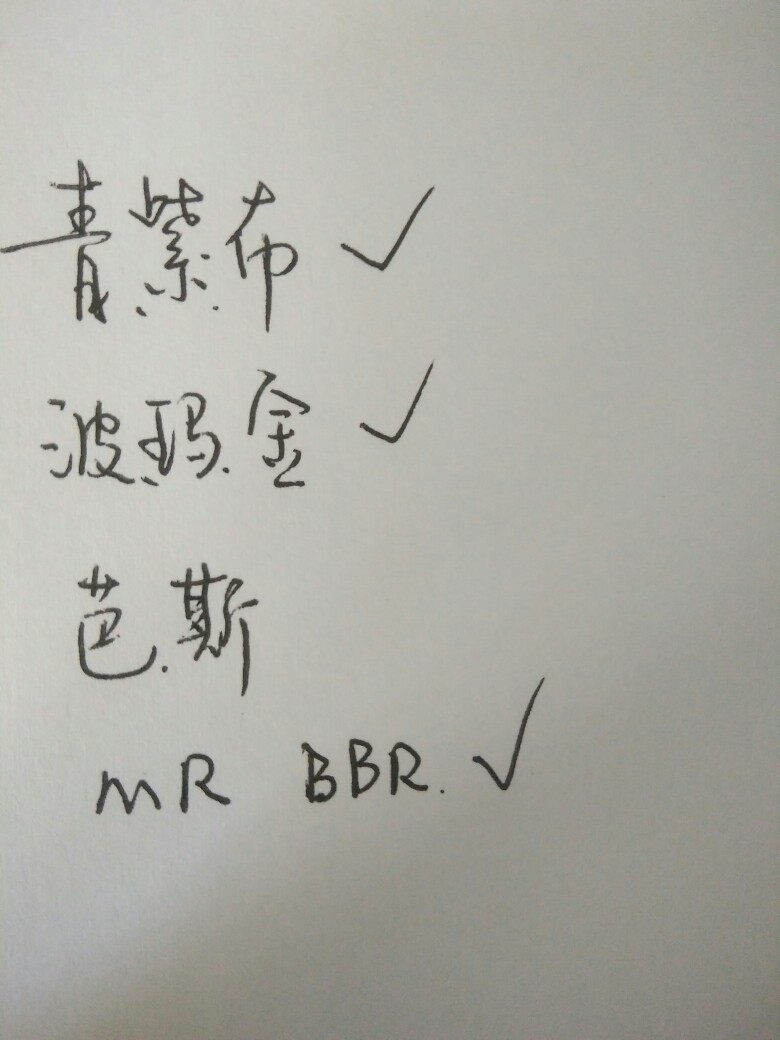 青紫布 ✓
波玛金 ✓
芭斯
mR BBR. ✓